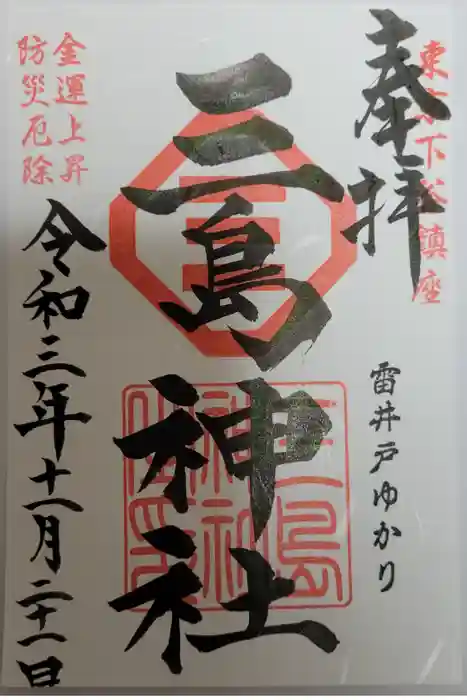 東京下谷鎮座
奉拝
雷井戸ゆかり
三島神社
三島
神社
金運上昇
防災厄除
令和三年十一月二十一日